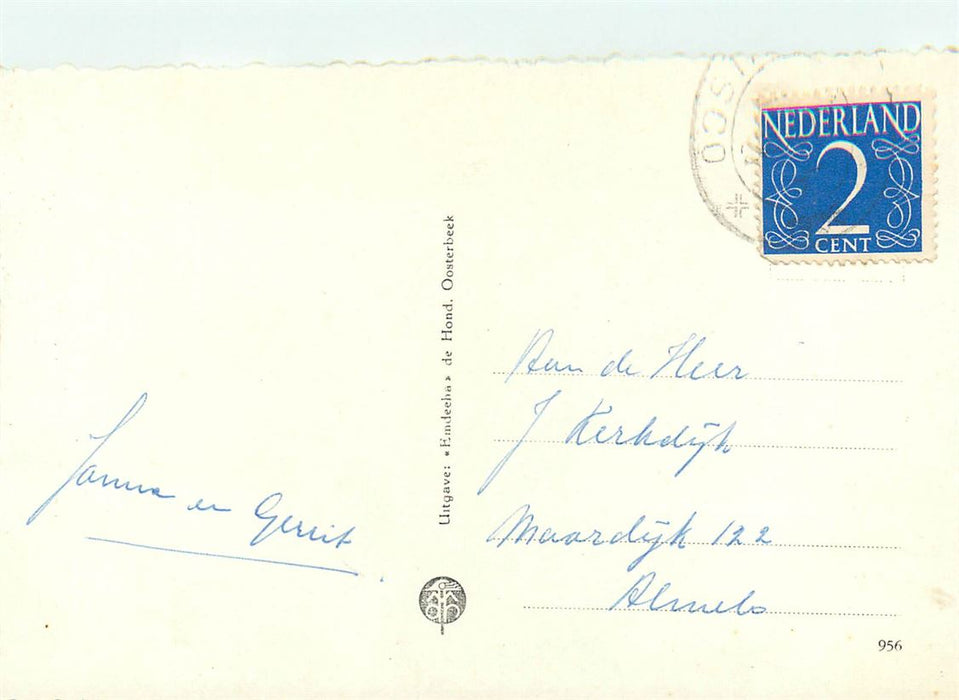 NEDERLAND
2
CENT
Aan de Heer
J Kerkdijk
Maardijk 122
Almelo
Janna en Gerrit
Uitgave: «Emdeeha» de Hond, Oosterbeek
956